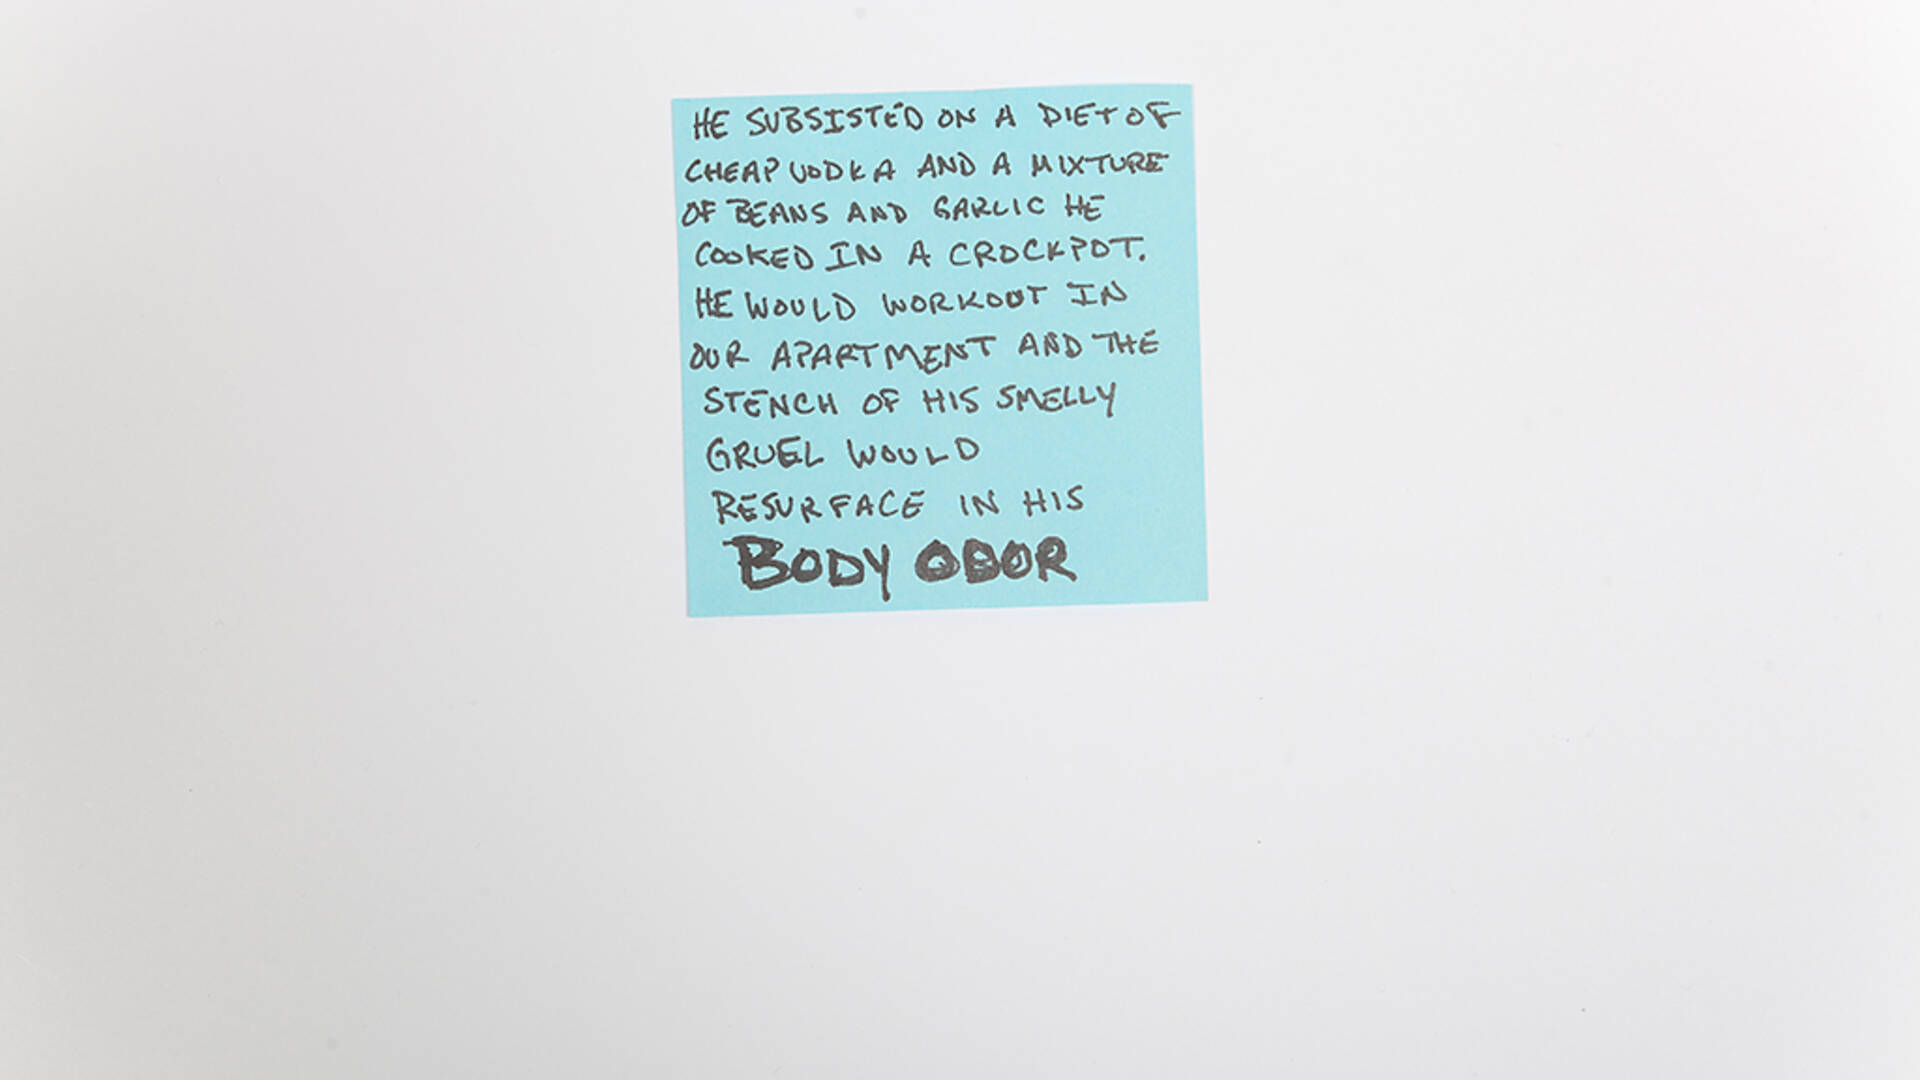 HE SUBSISTED ON A DIET OF
CHEAP VODKA AND A MIXTURE
OF BEANS AND GARLIC HE
COOKED IN A CROCKPOT.
HE WOULD WORKOUT IN
OUR APARTMENT AND THE
STENCH OF HIS SMELLY
GRUEL WOULD
RESURFACE IN HIS
BODY ODOR